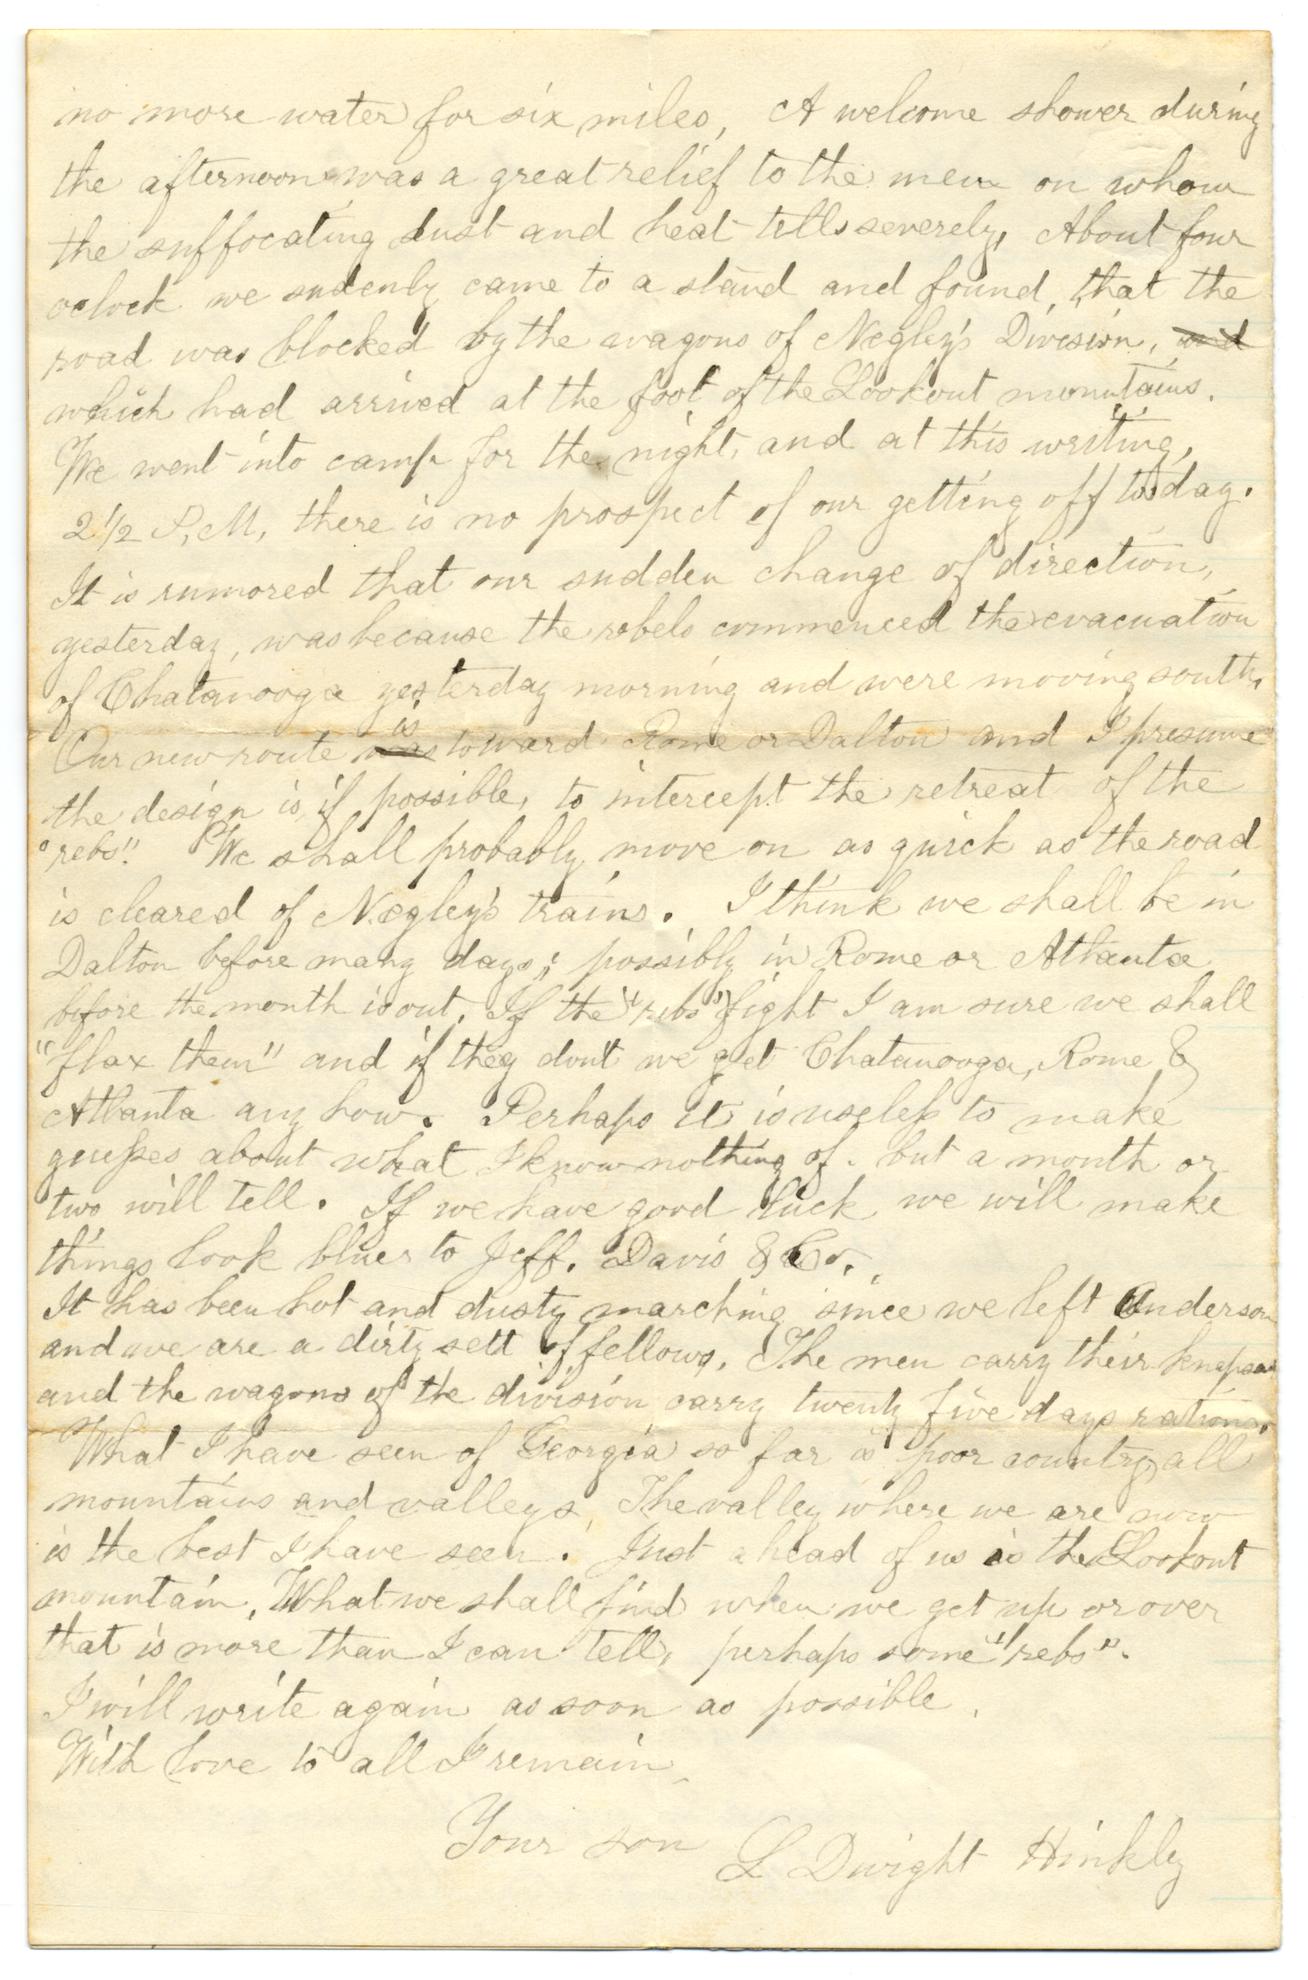 no more water for six miles, A welcome shower during
the afternoon was a great relief to the men on whom
the suffocating dust and heat tells severely, About four
oclock we sudenly came to a stand and found, that the
road was blocked by the wagons of Negley's Division, and
which had arrived at the foot of the Lookout mountains.
We went into camp for the night, and at this writing,
2 1/2 P,M, there is no prospect of our getting off to day.
It is rumored that our sudden change of direction,
yesterday, was because the rebels commenced the evacuation
of Chatanooga yesterday morning and were moving south,
is
Our new route was toward Rome or Dalton and I presume
the design is, if possible, to intercept the retreat of the
"rebs". We shall probably move on as quick as the road
is cleared of Negley's trains. I think we shall be in
Dalton before many days; possibly in Rome or Atlanta
before the month is out. If the "rebs" fight I am sure we shall
"flax them" and if they dont we get Chatanooga, Rome &
Atlanta any how. Perhaps it is useless to make
guesses about what I know nothing of. but a month or
two will tell. If we have good luck we will make
things look blue to Jeff. Davis & Co.
It has been hot and dusty marching since we left Anderson
and we are a dirty sett of fellows. The men carry their
and the wagons of the division carry twenty five days rations.
What I have seen of Georgia so far is poor country, all
mountains and valleys, The valley where we are now
is the best I have seen. Just ahead of us is the Lookout
mountain, What we shall find when we get up or over
that is more than I can tell, perhaps some "rebs".
I will write again as soon as possible.
With love to all I remain
Your son L Dwight Hinkly